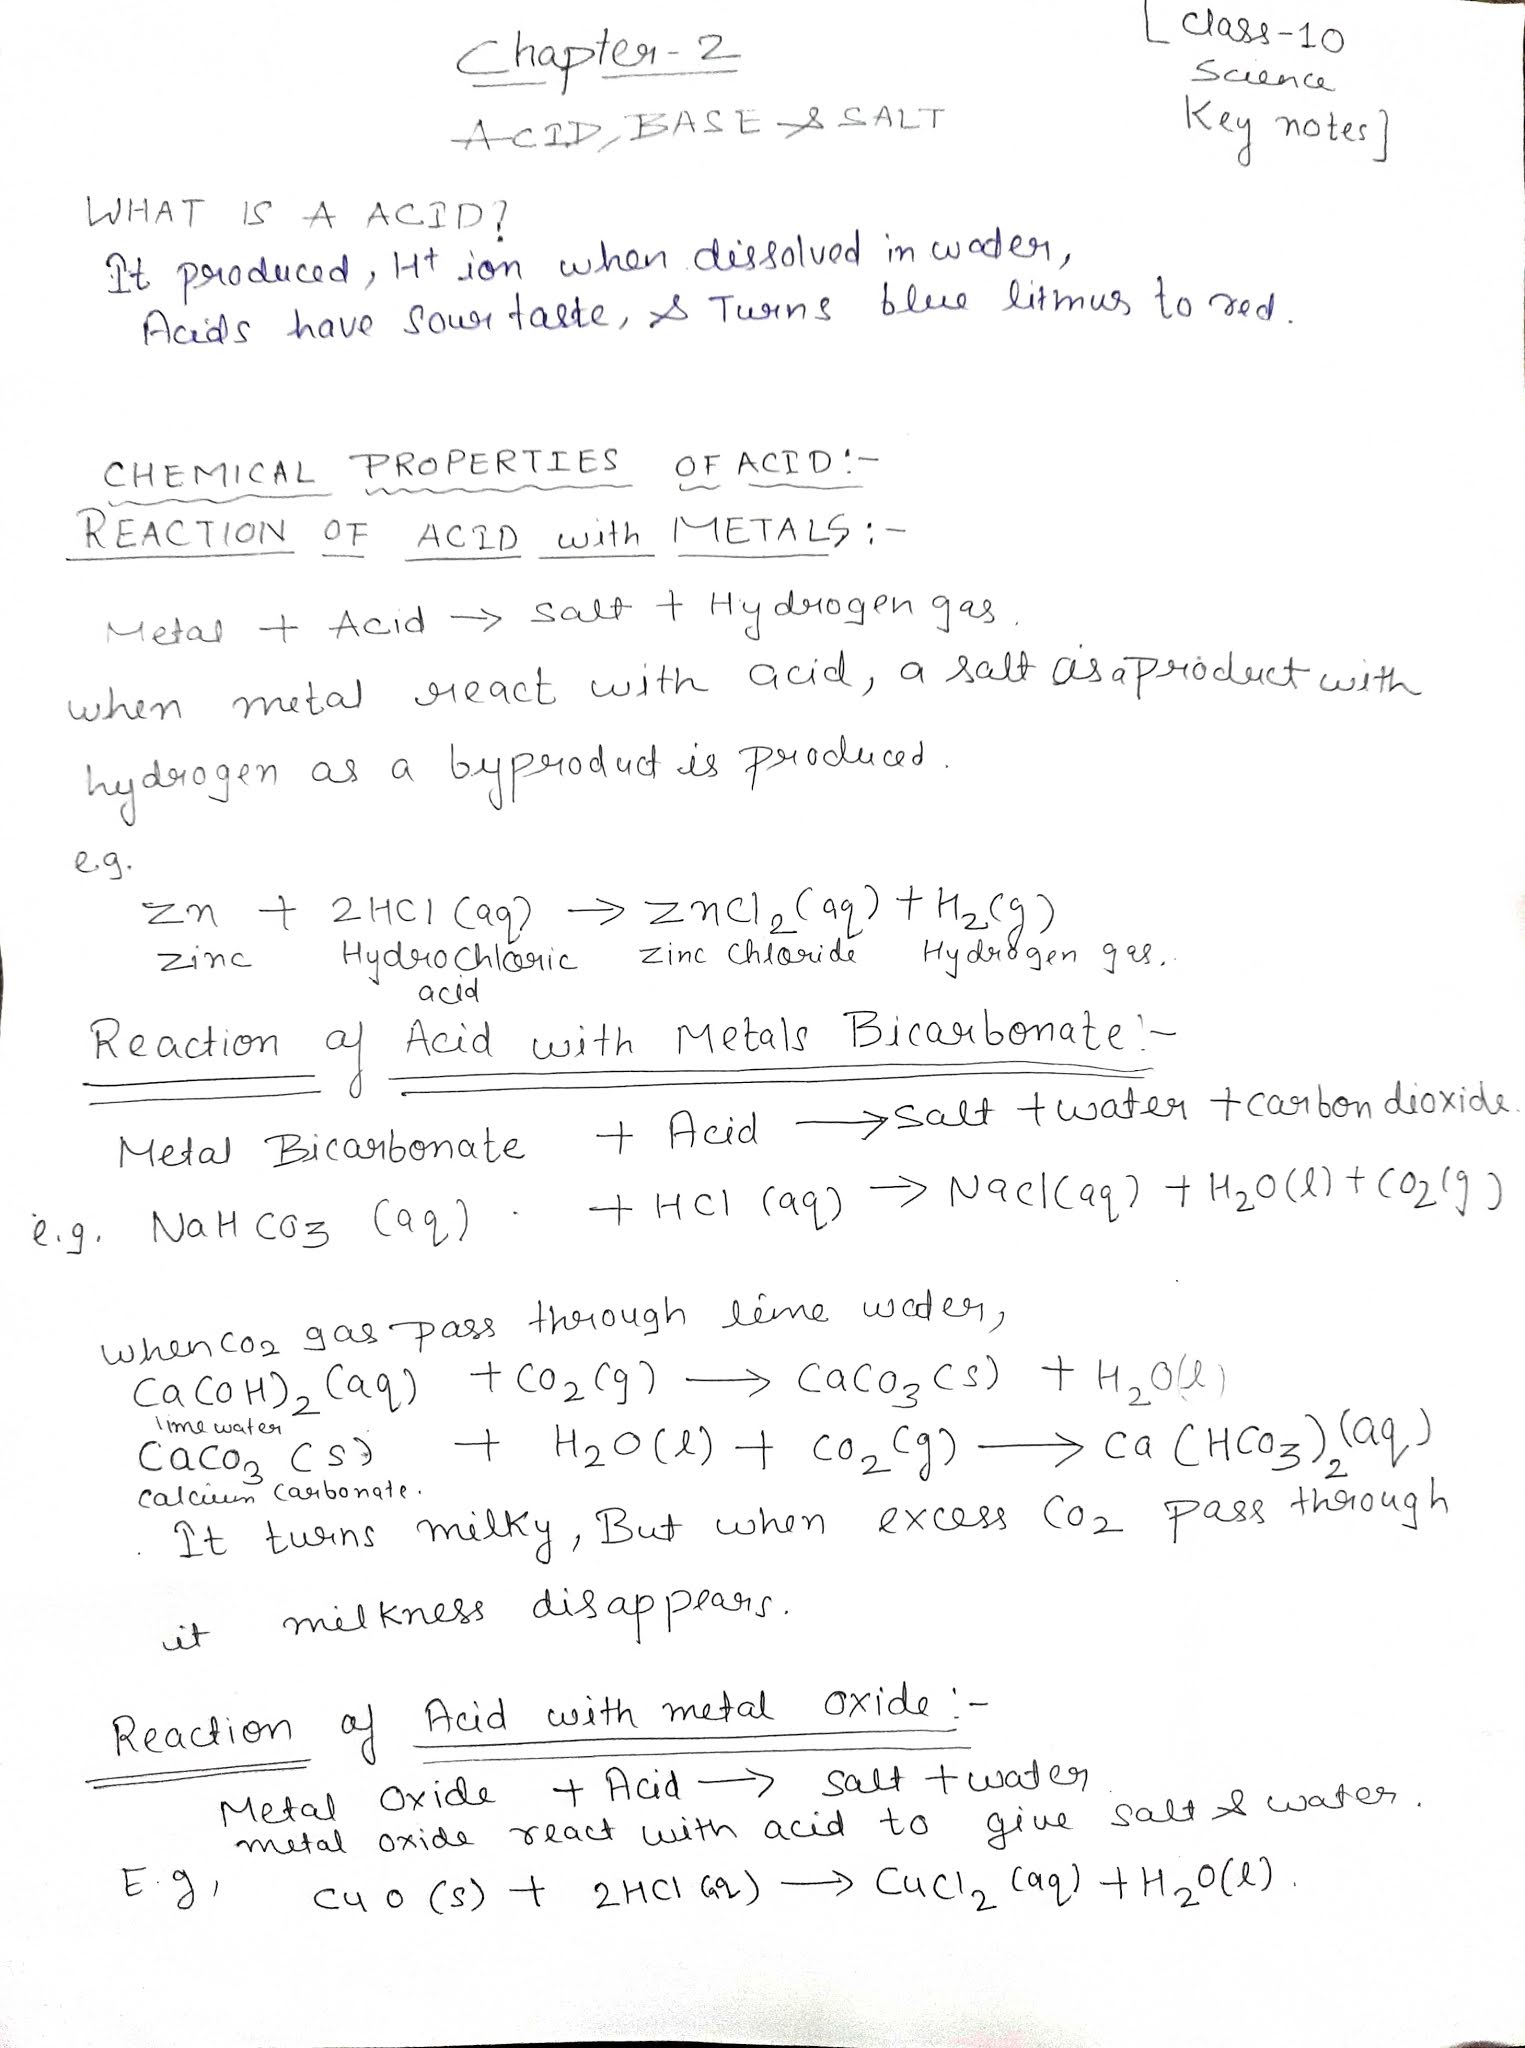 [Class-10
Chapter-2
Science
ACID, BASE & SALT
Key notes]
WHAT IS A ACID?
It produced, H+ ion when dissolved in water,
Acids have sour taste, & Turns blue litmus to red.
CHEMICAL PROPERTIES OF ACID:-
REACTION OF ACID with METALS:-
Metal + Acid → salt + Hydrogen gas.
when metal react with acid, a salt as a product with
hydrogen as a byproduct is produced.
e.g.
Zn + 2HCl (aq) → ZnCl2 (aq) + H2(g)
zinc Hydrochloric zinc chloride Hydrogen gas.
acid
Reaction of Acid with Metals Bicarbonate:-
Metal Bicarbonate + Acid → salt + water + carbon dioxide.
e.g. NaHCO3 (aq) + HCl (aq) → NaCl(aq) + H2O(l) + CO2(g)
when CO2 gas pass through lime water,
Ca(OH)2 (aq) + CO2(g) → CaCO3(s) + H2O(l)
lime water
CaCO3 (s) + H2O(l) + CO2(g) → Ca(HCO3)2(aq)
calcium carbonate.
It turns milky, But when excess CO2 pass through
it milkness disappears.
Reaction of Acid with metal oxide:-
Metal Oxide + Acid → salt + water
metal oxide react with acid to give salt & water.
E.g, CuO(s) + 2HCl (aq) → CuCl2 (aq) + H2O(l).